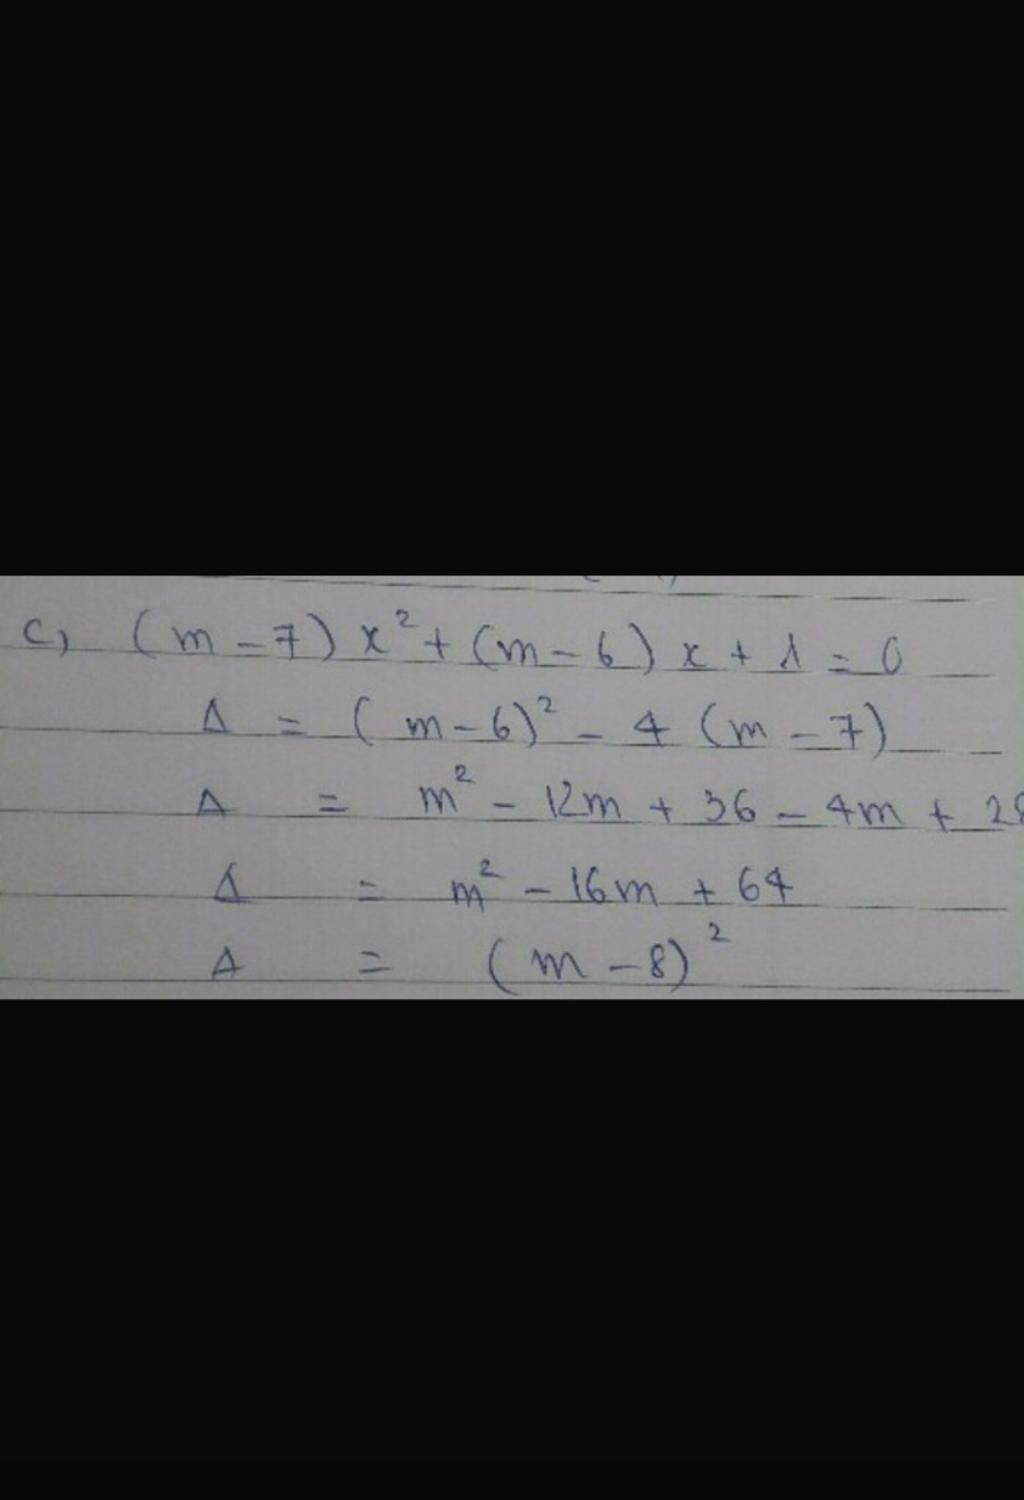 c, (m - 7) x² + (m - 6) x + 1 = 0
Δ = (m - 6)² - 4 (m - 7)
Δ = m² - 12m + 36 - 4m + 28
Δ = m² - 16m + 64
Δ = (m - 8)²